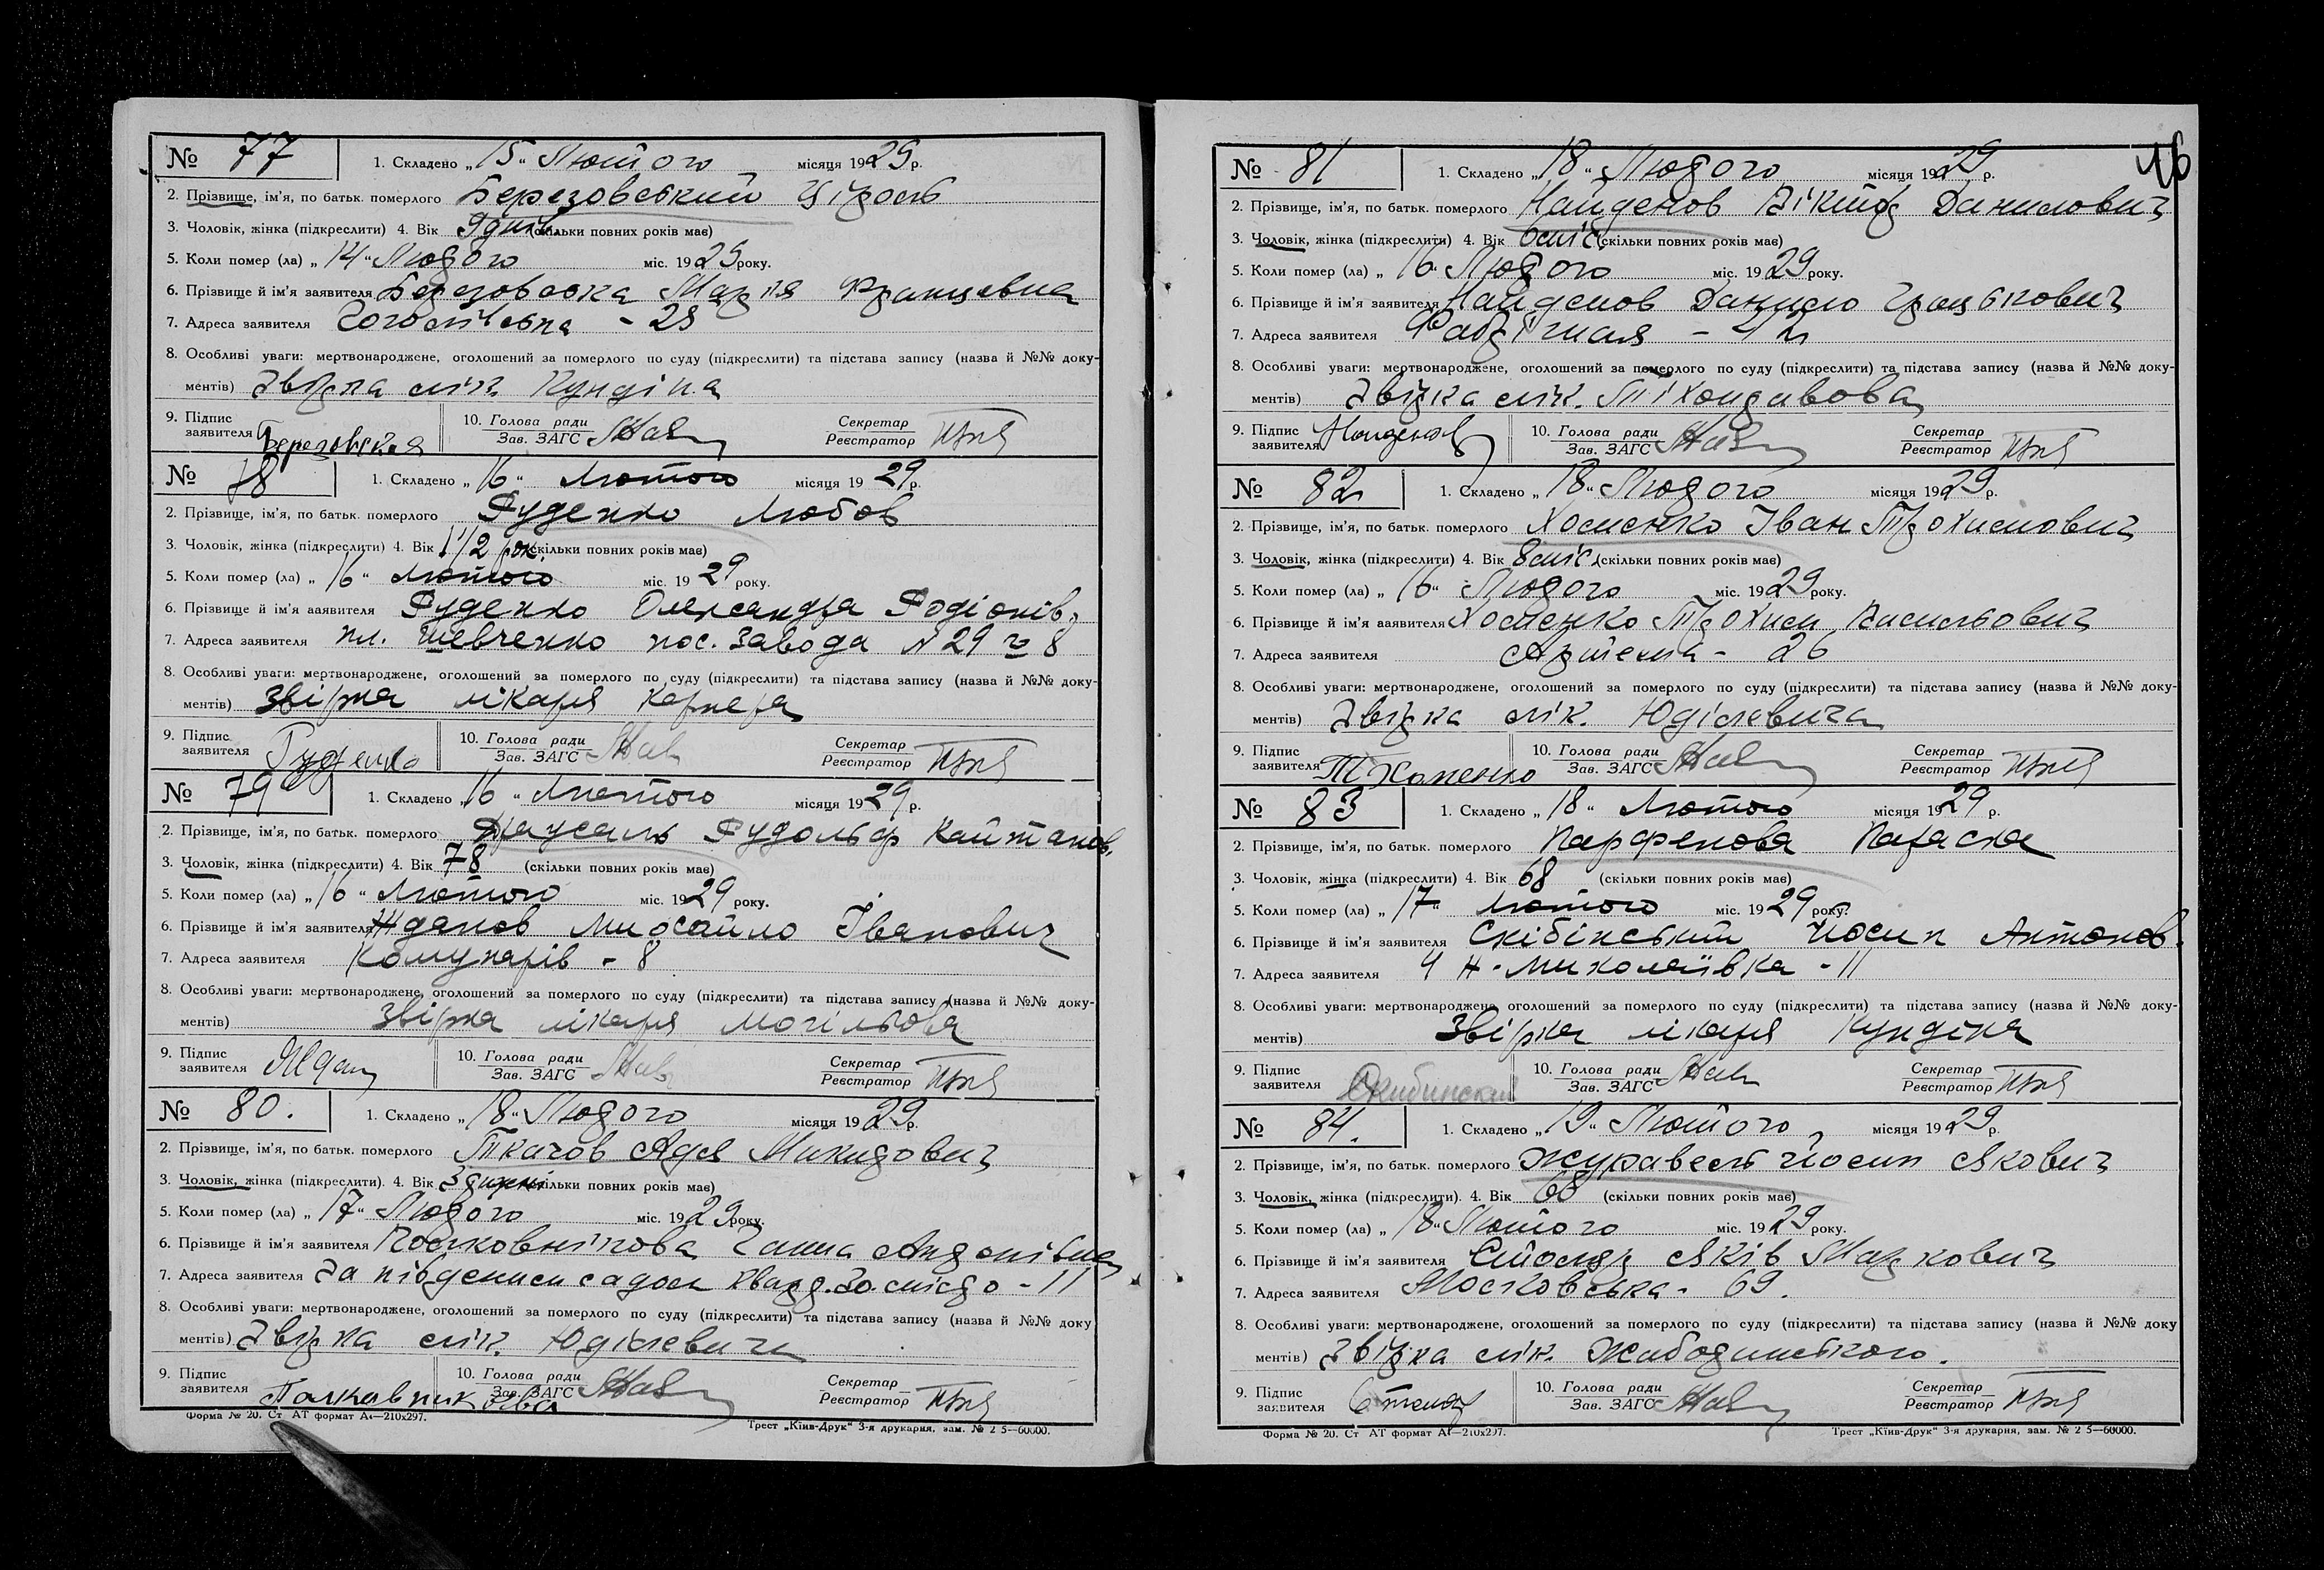 № 77 1. Складено „15“ Лютого місяця 1929 р.
2. Прізвище, ім'я, по батьк. померлого Березовський
3. Чоловік, жінка (підкреслити) 4. Вік 9 днів (скільки повних років має)
5. Коли помер (ла) „14“ Лютого міс. 1929 року.
6. Прізвище й ім'я заявителя Березовська Марія Францевна
7. Адреса заявителя Гоголівська - 28
8. Особливі уваги: мертвонароджене, оголошений за померлого по суду (підкреслити) та підстава запису (назва й №№ доку-
ментів) Звірка лік. Кундіна
9. Підпис заявителя Березовская 10. Голова ради Зав. ЗАГС Секретар Реєстратор
№ 78 1. Складено „16“ Лютого місяця 1929 р.
2. Прізвище, ім'я, по батьк. померлого Руденко Любов
3. Чоловік, жінка (підкреслити) 4. Вік 1 1/2 рок. (скільки повних років має)
5. Коли помер (ла) „16“ Лютого міс. 1929 року.
6. Прізвище й ім'я заявителя Руденко Олександра Родіонів.
7. Адреса заявителя пл. Шевченко пос. Завода № 29 8
8. Особливі уваги: мертвонароджене, оголошений за померлого по суду (підкреслити) та підстава запису (назва й №№ доку-
ментів) Звірка лікаря Корнера
9. Підпис заявителя Руденко 10. Голова ради Зав. ЗАГС Секретар Реєстратор
№ 79 1. Складено „16“ Лютого місяця 1929 р.
2. Прізвище, ім'я, по батьк. померлого Рудольф Кайтанов.
3. Чоловік, жінка (підкреслити) 4. Вік 78 (скільки повних років має)
5. Коли помер (ла) „16“ Лютого міс. 1929 року.
6. Прізвище й ім'я заявителя Жданов Михайло Іванович
7. Адреса заявителя Комунарів - 8
8. Особливі уваги: мертвонароджене, оголошений за померлого по суду (підкреслити) та підстава запису (назва й №№ доку-
ментів) Звірка лікаря Могільова
9. Підпис заявителя 10. Голова ради Зав. ЗАГС Секретар Реєстратор
№ 80. 1. Складено „18“ Лютого місяця 1929 р.
2. Прізвище, ім'я, по батьк. померлого Ткачов Микитович
3. Чоловік, жінка (підкреслити). 4. Вік 3 дні (скільки повних років має)
5. Коли помер (ла) „17“ Лютого міс. 1929 року.
6. Прізвище й ім'я заявителя Ганна
7. Адреса заявителя За південим садом - 11
8. Особливі уваги: мертвонароджене, оголошений за померлого по суду (підкреслити) та підстава запису (назва й №№ доку
ментів) Звірка лік. Юділевича
9. Підпис заявителя 10. Голова ради Зав. ЗАГС Секретар Реєстратор
Форма № 20. Ст АТ формат А4—210х297. Трест „Київ-Друк“ 3-я друкарня, зам. № 2 5—60000.
16
№ 81 1. Складено „18“ Лютого місяця 1929 р.
2. Прізвище, ім'я, по батьк. померлого Найденов Віктор Данилович
3. Чоловік, жінка (підкреслити) 4. Вік 6 міс (скільки повних років має)
5. Коли помер (ла) „16“ Лютого міс. 1929 року.
6. Прізвище й ім'я заявителя Найденов Данило
7. Адреса заявителя
8. Особливі уваги: мертвонароджене, оголошений за померлого по суду (підкреслити) та підстава запису (назва й №№ доку-
ментів) Звірка лік.
9. Підпис заявителя Найденов 10. Голова ради Зав. ЗАГС Секретар Реєстратор
№ 82 1. Складено „18“ Лютого місяця 1929 р.
2. Прізвище, ім'я, по батьк. померлого Хоменко Іван Трохимович
3. Чоловік, жінка (підкреслити) 4. Вік 8 міс. (скільки повних років має)
5. Коли помер (ла) „16“ Лютого міс. 1929 року.
6. Прізвище й ім'я заявителя Хоменко Трохим Васильович
7. Адреса заявителя Артема - 26
8. Особливі уваги: мертвонароджене, оголошений за померлого по суду (підкреслити) та підстава запису (назва й №№ доку-
ментів) Звірка лік. Юділевича
9. Підпис заявителя Т Хоменко 10. Голова ради Зав. ЗАГС Секретар Реєстратор
№ 83 1. Складено „18“ Лютого місяця 1929 р.
2. Прізвище, ім'я, по батьк. померлого Парфенова Параска
3. Чоловік, жінка (підкреслити) 4. Вік 68 (скільки повних років має)
5. Коли помер (ла) „17“ Лютого міс. 1929 року.
6. Прізвище й ім'я заявителя Скібінський Йосип Антонов.
7. Адреса заявителя 4 Н-Миколаївка - 11
8. Особливі уваги: мертвонароджене, оголошений за померлого по суду (підкреслити) та підстава запису (назва й №№ доку-
ментів) Звірка лікаря Кундіна
9. Підпис заявителя Скибинский 10. Голова ради Зав. ЗАГС Секретар Реєстратор
№ 84. 1. Складено „19“ Лютого місяця 1929 р.
2. Прізвище, ім'я, по батьк. померлого Журавель Йосип Якович
3. Чоловік, жінка (підкреслити). 4. Вік 68 (скільки повних років має)
5. Коли помер (ла) „18“ Лютого міс. 1929 року.
6. Прізвище й ім'я заявителя Столяр Яків Маркович
7. Адреса заявителя Московська - 69.
8. Особливі уваги: мертвонароджене, оголошений за померлого по суду (підкреслити) та підстава запису (назва й №№ доку
ментів) Звірка лік.
9. Підпис заявителя 10. Голова ради Зав. ЗАГС Секретар Реєстратор
Форма № 20. Ст АТ формат А4—210х297. Трест „Київ-Друк“ 3-я друкарня, зам. № 2 5—60000.